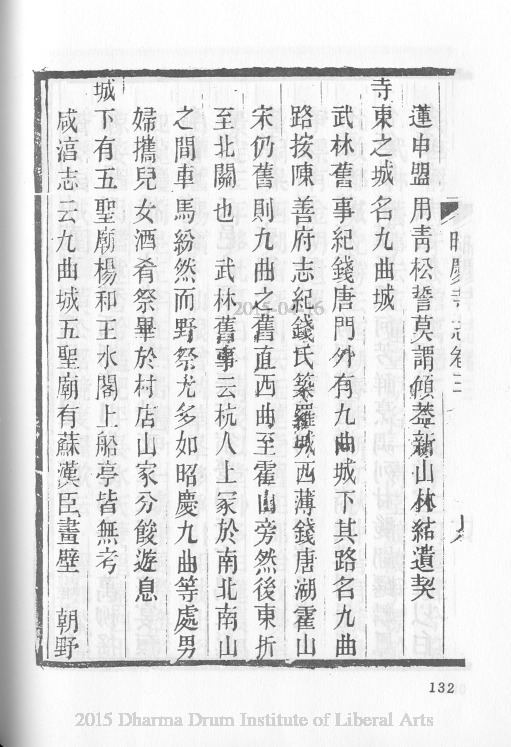 蓮申盟用靑松誓莫謂傾葢新山林結遺契
寺東之城名九曲城
武林舊事紀錢唐門外有九曲城下其路名九曲
路按陳善府志紀錢氏築羅城西薄錢唐湖霍山
宋仍舊則九曲之舊直西曲至霍山旁然後東折
至北關也　武林舊事云杭人上冢於南北南山
之間車馬紛然而野祭尤多如昭慶九曲等處男
婦攜兒女酒肴祭畢於村店山家分餕遊息
城下有五聖廟楊和王水閣上船亭皆無考
咸湻志云九曲城五聖廟有蘇漢臣畫壁　朝野
昭慶寺志卷三
132
2015-04-16
2015 Dharma Drum Institute of Liberal Arts